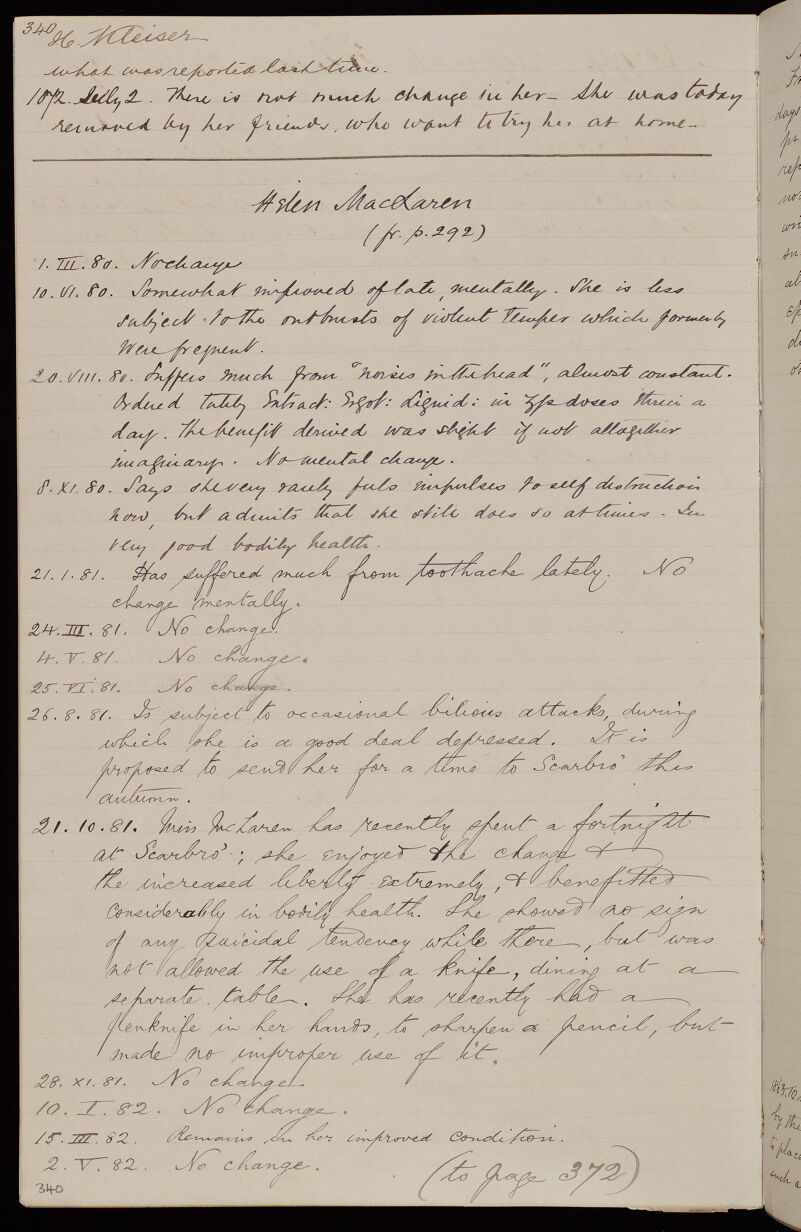 340
H. Kleiser
what was reported last time.
1872. July 2. There is not much change in her – She was today
removed by her friends, who want to try her at home –
Helen MacLaren
(fr. p. 292)
1. III. 80. No change
10. VI. 80. Somewhat improved of late, mentally. She is less
subject to the outbursts of violent temper which formerly
were frequent.
20. VIII. 80. Suffers much from "noises in the head", almost constant.
Ordered Extract: Ergot: Liquid: in doses thrice a
day. The benefit derived was slight if not altogether
imaginary. No mental change.
8. XI. 80. Says she very rarely feels impulses to self destruction
now, but admits that she still does so at times – In
very good bodily health.
21. 1. 81. Has suffered much from toothache lately. No
change mentally.
24. III. 81. No change.
4. V. 81. No change.
25. VI. 81. No change.
26. 8. 81. Is subject to occasional bilious attacks, during
which she is a good deal depressed. It is
proposed to send her for a time to Scarbro' this
autumn.
21. 10. 81. Miss McLaren has recently spent a fortnight
at Scarbro'; she enjoyed the change &
the increased liberty extremely, & benefitted
considerably in bodily health. She showed no sign
of any suicidal tendency while there, but was
not allowed the use of a knife, dining at a
separate table. She has recently had a
penknife in her hands, to sharpen a pencil, but
made no improper use of it.
28. XI. 81. No change.
10. I. 82. No change.
15. III. 82. Remains in her improved condition.
2. V. 82. No change.
(to page 372)
340